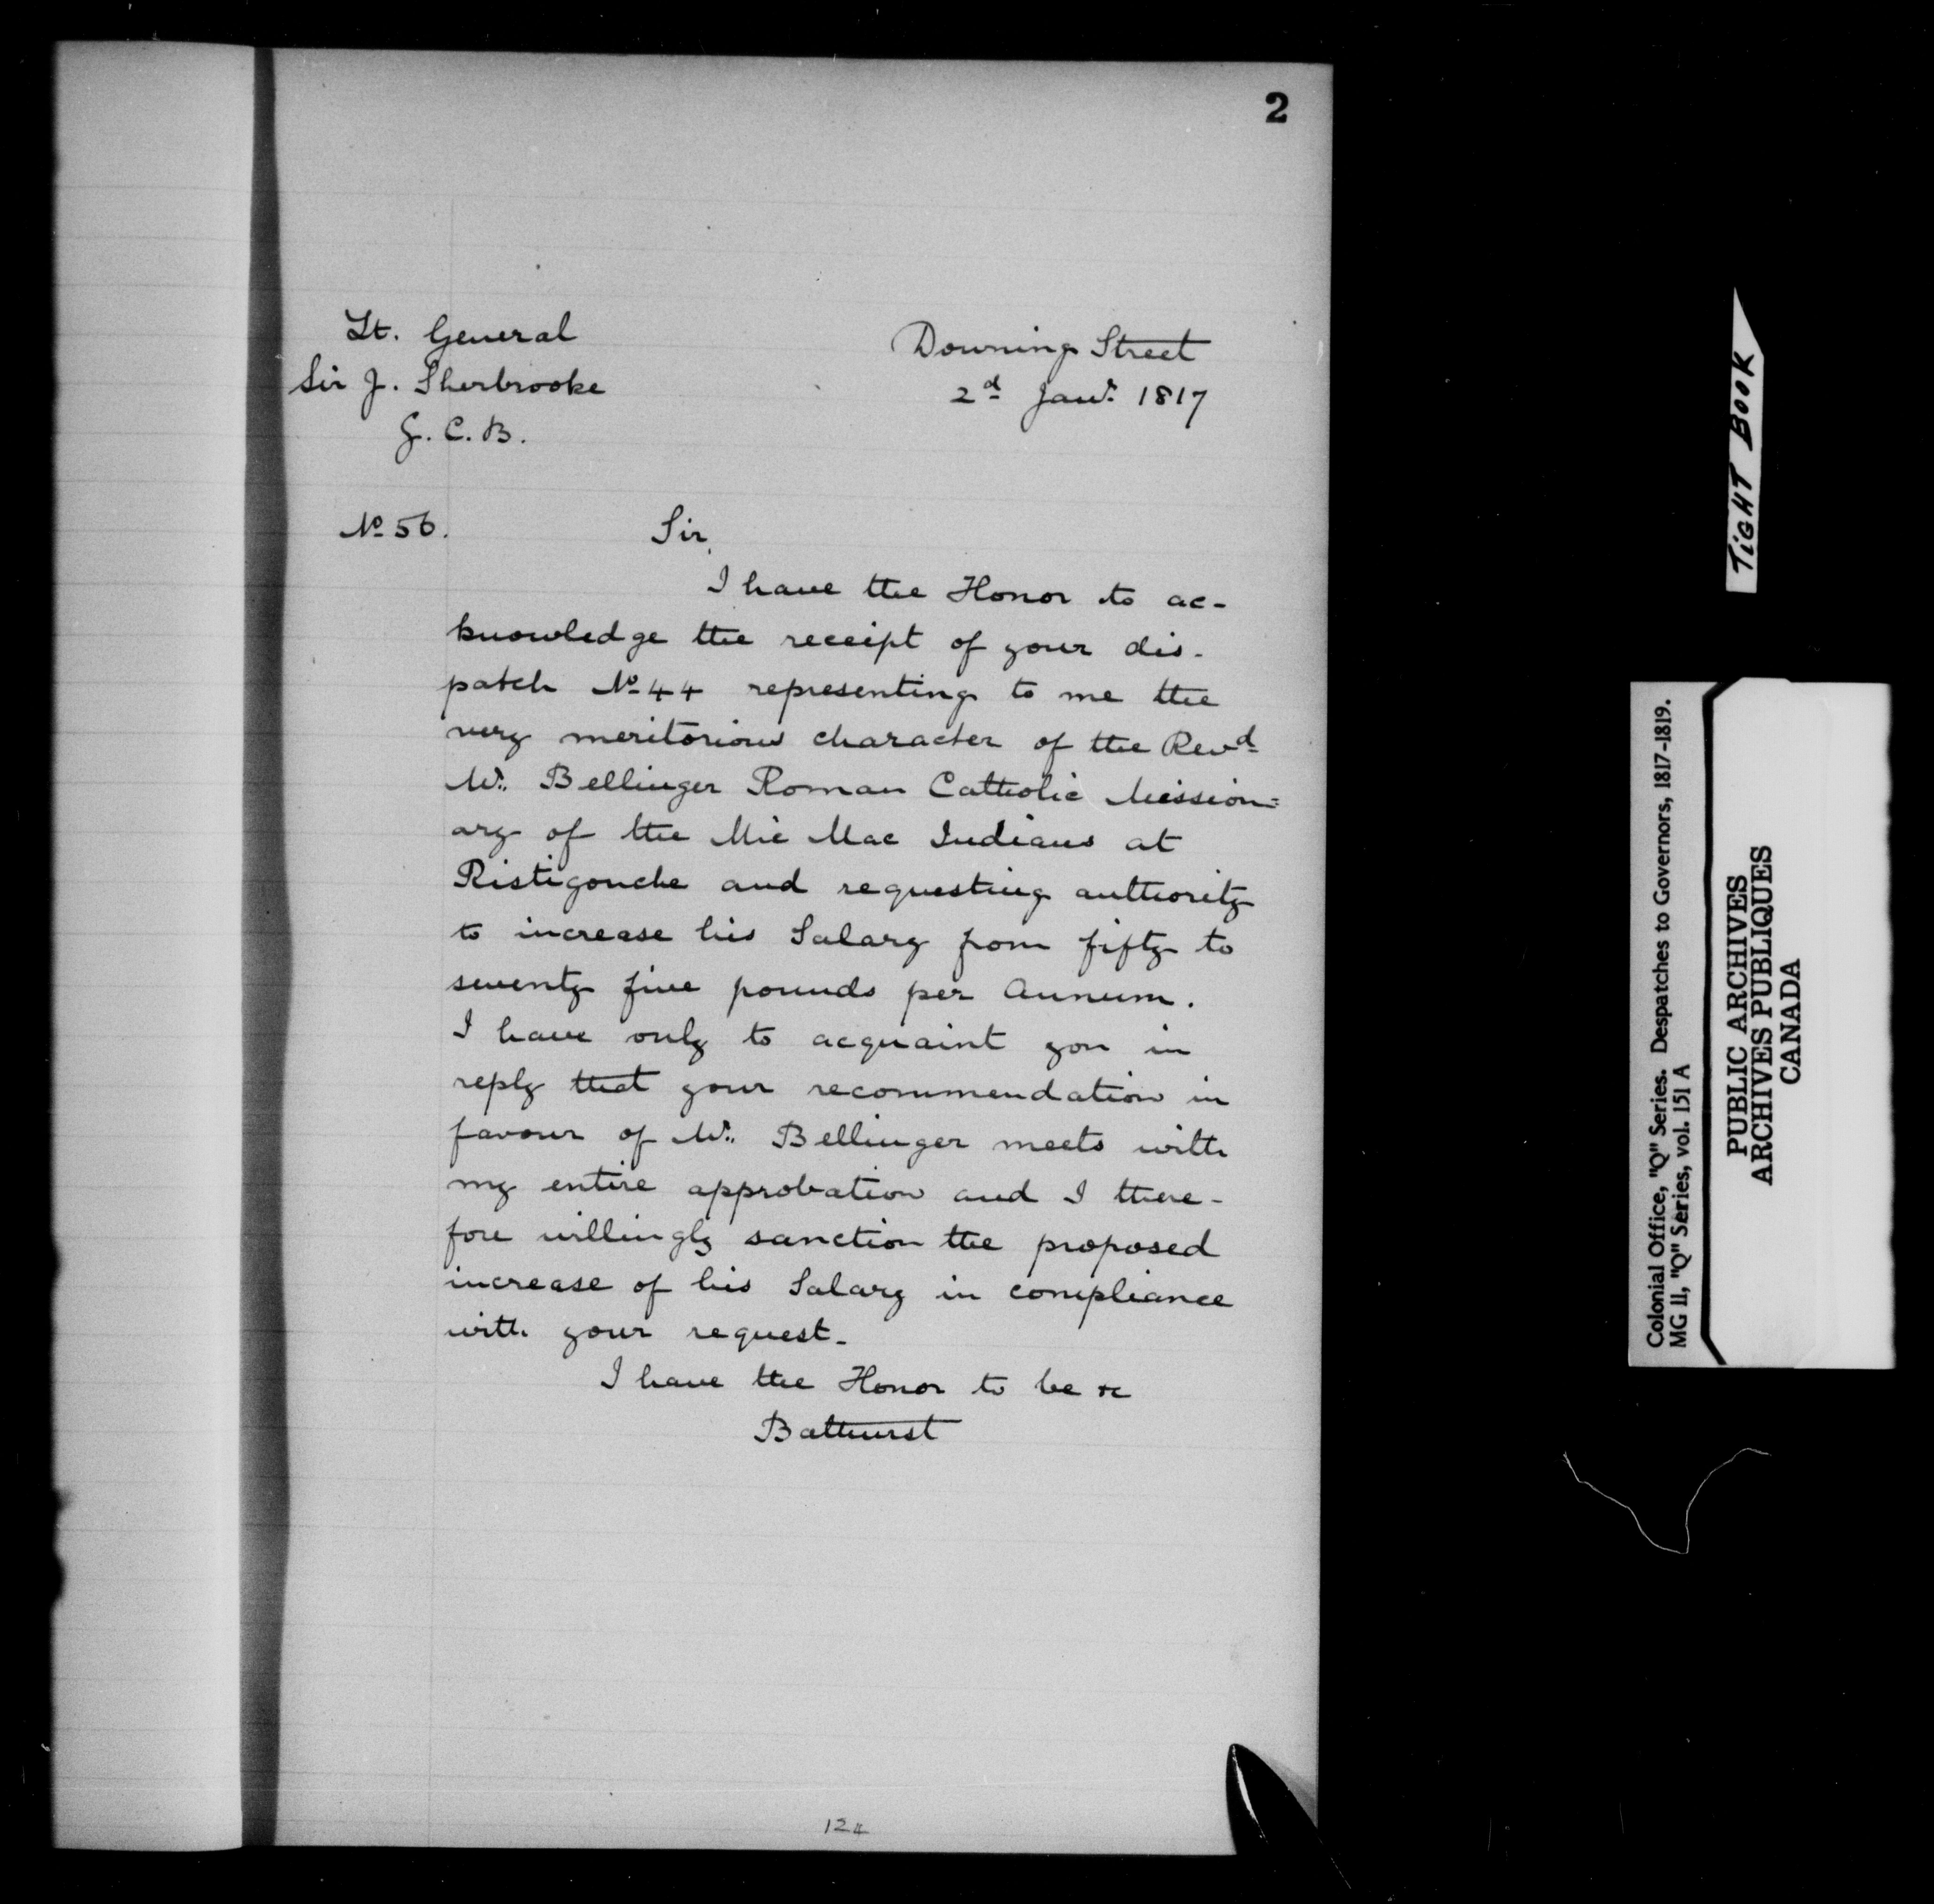 2
Lt. General
Sir J. Sherbrooke
G.C.B.
Downing Street
2d Jany. 1817
No 56.
Sir,
I have the Honor to ac-
knowledge the receipt of your dis-
patch No 44 representing to me the
very meritorious character of the Revd
Mr. Bellinger Roman Catholic Mission=
ary of the Mic Mac Indians at
Ristigouche and requesting authority
to increase his Salary from fifty to
seventy five pounds per Annum.
I have only to acquaint you in
reply that your recommendation in
favour of Mr. Bellinger meets with
my entire approbation and I there-
fore willingly sanction the proposed
increase of his Salary in compliance
with your request.
I have the Honor to be &c
Bathurst
124
TIGHT BOOK
Colonial Office, "Q" Series. Despatches to Governors, 1817-1819.
MG 11, "Q" Series, vol. 151 A
PUBLIC ARCHIVES
ARCHIVES PUBLIQUES
CANADA